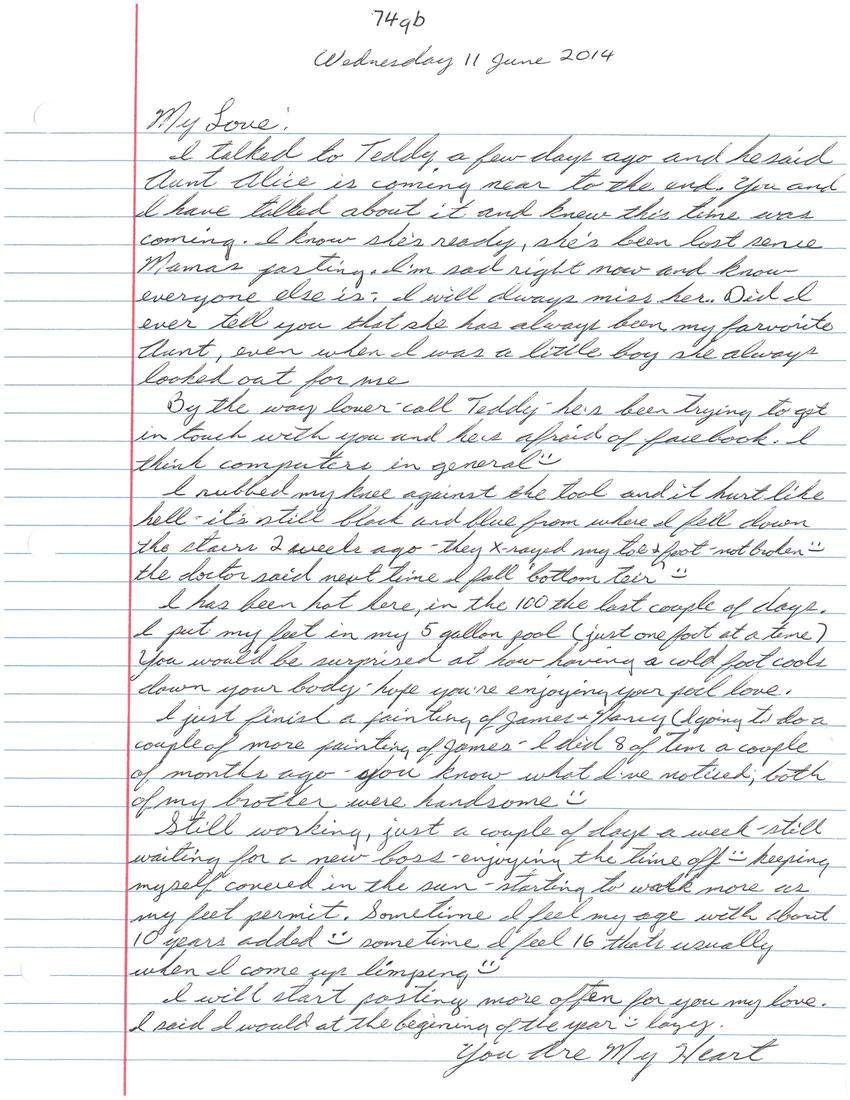 74gb
Wednesday 11 June 2014
My Love:
I talked to Teddy a few days ago and he said
Aunt Alice is coming near to the end. You and
I have talked about it and knew this time was
coming. I know she's ready, she's been lost sence
Mamas pasting. I'm sad right now and know
everyone else is; I will always miss her.. Did I
ever tell you that she has always been my farvorite
Aunt, even when I was a little boy she always
looked out for me
By the way lover-call Teddy-he's been trying to get
in touch with you and he's afraid of facebook. I
think computers in general
I rubbed my knee against the tool and it hurt like
hell-it's still black and blue from where I fell down
the stairs 2 weeks ago-they x-rayed my toe & foot-not broken
the doctor said next time I fall 'bottom teir'
I has been hot here, in the 100 the last couple of days.
I put my feet in my 5 gallon pool (just one foot at a time)
You would be surprised at how having a cold foot cools
down your body-hope you're enjoying your pool love.
I just finish a painting of James & Nancy (I going to do a
couple of more painting of James-I did 8 of tem a couple
of months ago-you know what I've noticed; both
of my brother were handsome
Still working, just a couple of days a week-still
waiting for a new boss-enjoying the time off keeping
myself covered in the sun-starting to walk more as
my feet permit. Sometime I feel my age with about
10 years added sometime I feel 16 thats usually
when I come up limping
I will start posting more often for you my love.
I said I would at the begining of the year lazy.
You Are My Heart